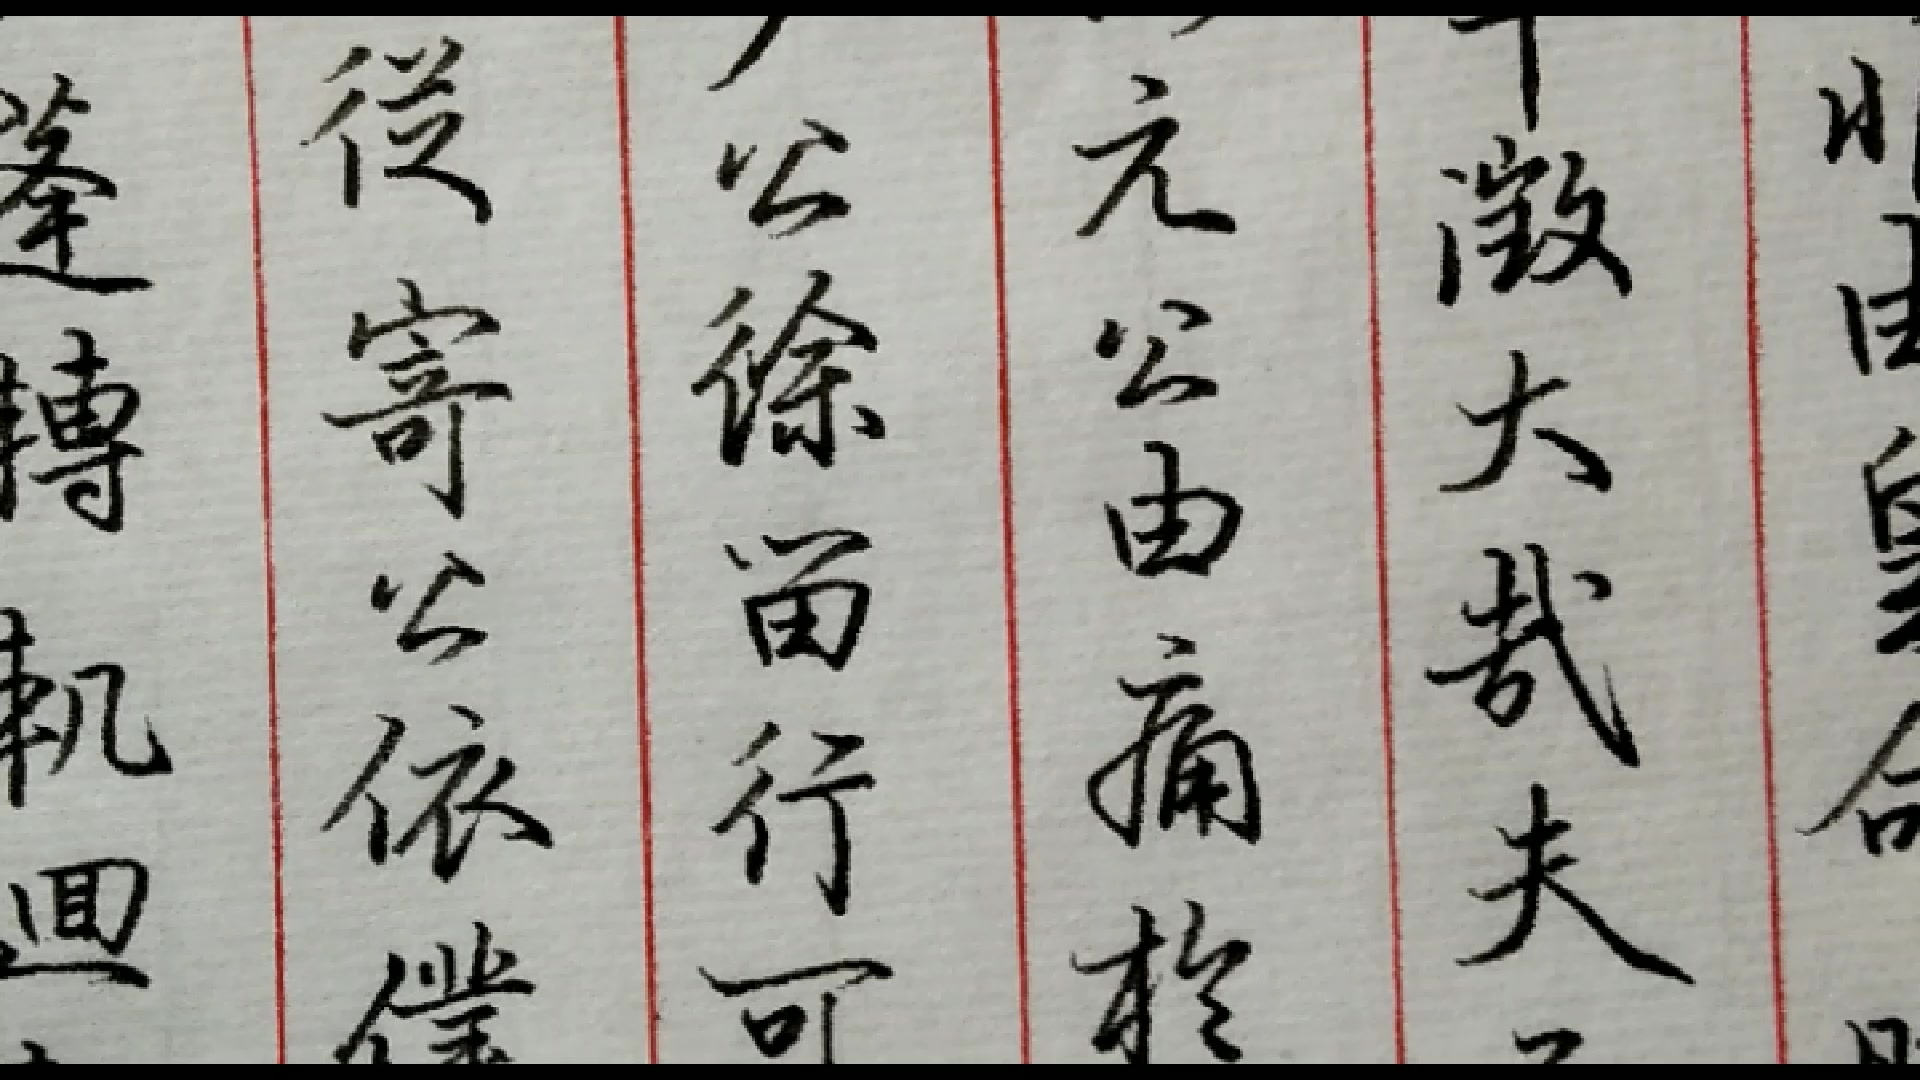 由皇合
澂大哉夫
元公由痛於
公徐留行可
從寄公依僕
蓬轉軌迴